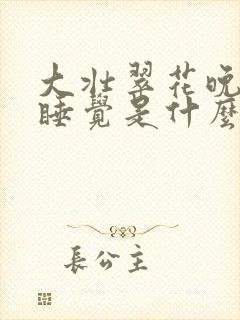 大壮翠花晚
睡覺是什麼
長公主